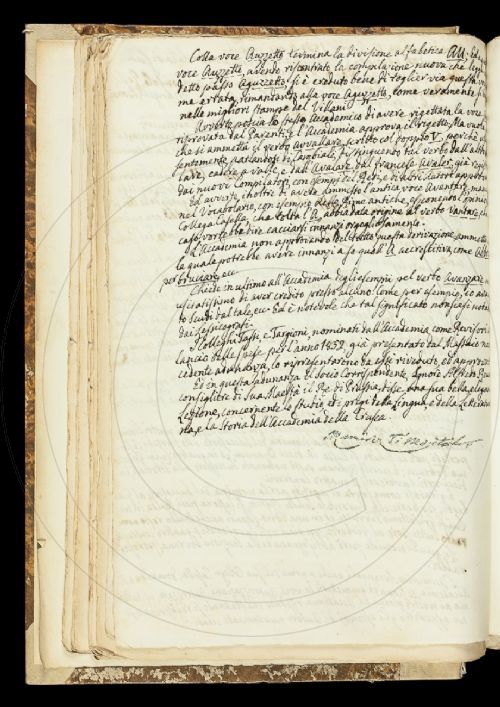 Colla voce Auzzetto termina la divisione alfabetica AU: ed
voce Auzzetto, avendo riscontrato la compilazione nuova che
detto passo Aguzzetto, si è creduto bene di toglier via questa
ma errata, rimandando alla voce Aguzzetto, come veramente si
nelle migliori stampe del Villani.
Avverte poscia lo stesso Accademico di avere rigettata la voce
riprovata dal Parenti: e l'Accademia approva il rigetto. Ma vuole
che si ammetta il verbo Avvallare, scritto col doppio V, perchè
lentemente, parlandosi di Cambiali, si distinguono tal verbo dall'altro
lare, cadere a valle, e dall'Avalare, dal francese Avaler, già
dai nuovi Compilatori, con esempi del Redi, e di altri Autori
Ed avverte, inoltre di avere dimesso l'antica voce Aventare,
nel Vocabolario, con esempio delle Rime antiche, e
Collega Casella, che tolta l'A, abbia data origine al verbo Vantar, che
caso potrebbe dire cacciarsi innanzi orgogliosamente.
L'Accademia non approvando del tutto questa derivazione, ammette
la quale potrebbe avere innanzi a se quell'A accrescitiva, come
per bruciare, ec.
Chiede in ultimo all'Accademia degli esempi pel verbo Avanzare,
usitatissimo di aver credito presso alcuno. Come per esempio, io avanzo
to scudi dal tale, ec. Ed è notevole che tal significato non siasi notato
dai lessicografi.
I Colleghi Tassi, e Targioni, nominati dall'Accademia come Revisori
lancio delle spese per l'anno 1839, già presentato dal Massaio nella
cedente adunanza, lo ripresentarono da essi riveduto, ed approvato
Ed in questa adunanza il Socio Corrispondente, Signore Alfredo
consigliere di Sua Maestà il Re di Prussia, disse una sua bella, elegante
Lezione, concernente lo studio, ed i pregi della Lingua, e della Letteratura
na, e la Storia dell'Accademia della Crusca.